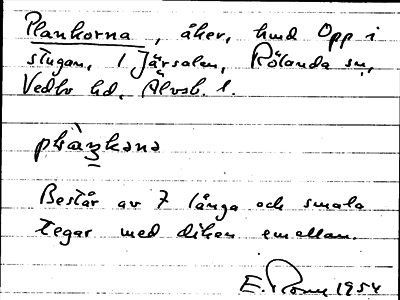 Plankorna, åker, hmd Opp i
stugan, 1 Järsalen, Rölanda sn,
Vedbo hd, Älvsb. l.
plàŋkana
Består av 7 långa och smala
tegar med diken emellan.
E. 1954